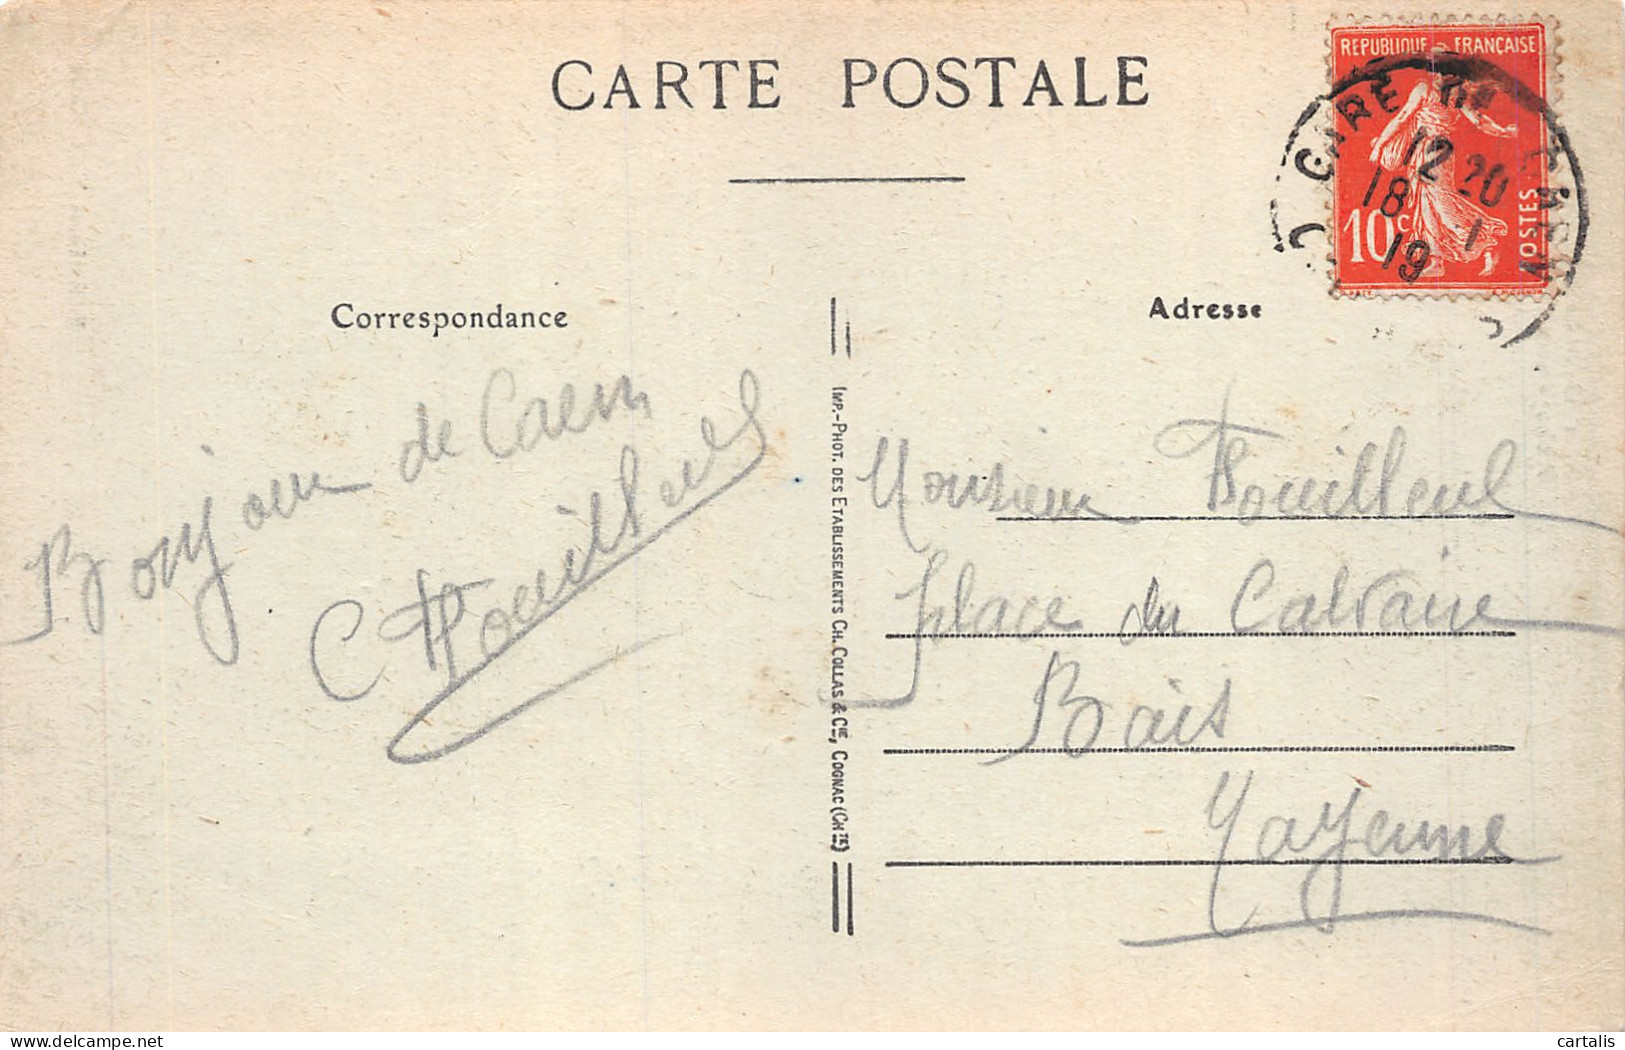 CARTE POSTALE
REPUBLIQUE FRANÇAISE
10c
POSTES
GARE
12 20
18 1
19
Correspondance
Adresse
Bonjour de Caen
C Fouilleul
IMP.-PHOT. DES ETABLISSEMENTS CH. COLLAS & CIE, COGNAC (CHTE)
Monsieur Fouilleul
place du Calvaire
Bais
Mayenne
delcampe.net
cartalis